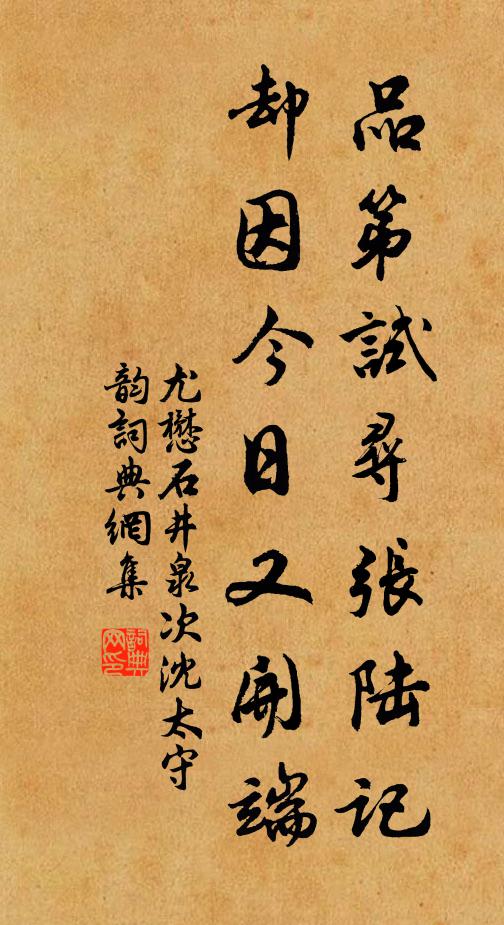 品第試尋張陆記
却因今日又開端
尤懋石井泉次沈太守
韵詞典網集
詞典網印